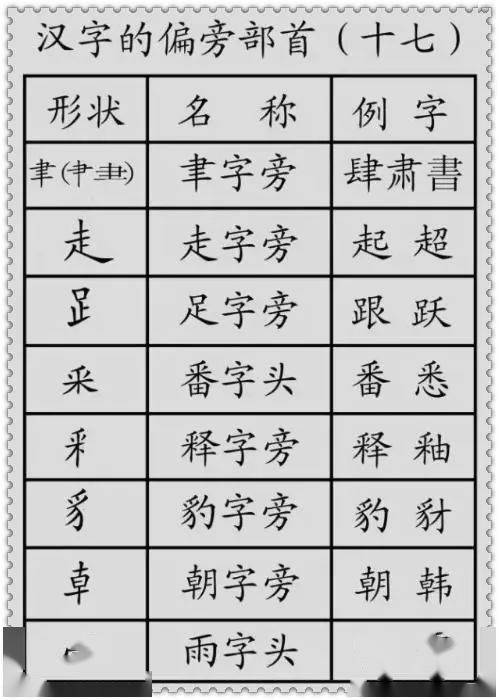 汉字的偏旁部首（十七）
形状 名称 例字
聿（肀⺻） 聿字旁 肆肃書
走 走字旁 起超
𧾷 足字旁 跟跃
釆 番字头 番悉
釆 释字旁 释釉
豸 豹字旁 豹豺
龺 朝字旁 朝韩
雨字头